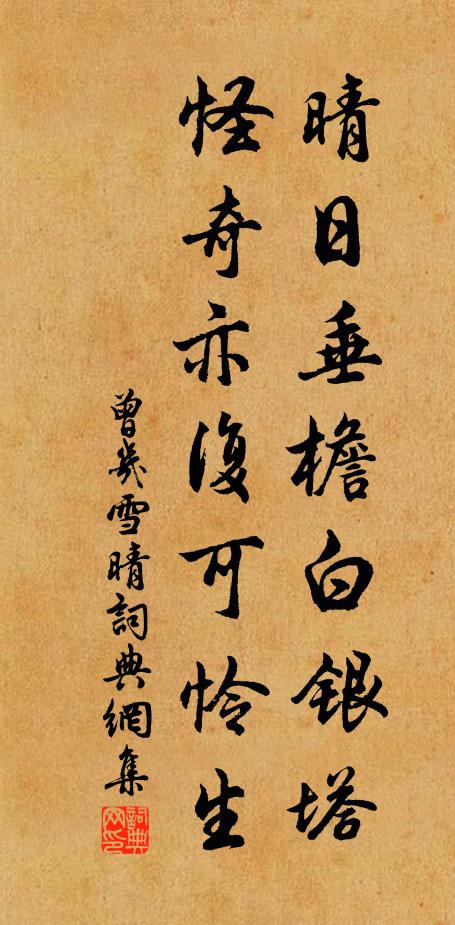 晴日垂檐白銀塔
怪奇亦復可怜生
曾幾雪晴詞典網集
詞典网印